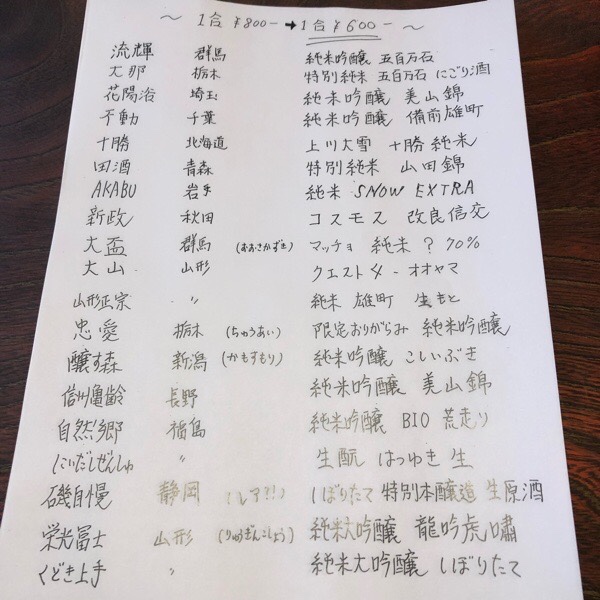 ～ 1合 ¥800- → 1合 ¥600- ～
流輝 群馬 純米吟醸 五百万石
大那 栃木 特別純米 五百万石 にごり酒
花陽浴 埼玉 純米吟醸 美山錦
不動 千葉 純米吟醸 備前雄町
十勝 北海道 上川大雪 十勝 純米
田酒 青森 特別純米 山田錦
AKABU 岩手 純米 SNOW EXTRA
新政 秋田 コスモス 改良信交
大盃 群馬 (おおさかずき) マッチョ 純米 ? 70%
大山 山形 クエスト4-オオヤマ
山形正宗 〃 純米 雄町 生もと
忠愛 栃木 (ちゅうあい) 限定おりがらみ 純米吟醸
醸す森 新潟 (かもすもり) 純米吟醸 こしいぶき
信州亀齢 長野 純米吟醸 美山錦
自然郷 福島 純米吟醸 BIO 荒走り
にいだしぜんしゅ 〃 生酛 はつゆき 生
磯自慢 静岡 (レア?!) しぼりたて 特別本醸造 生原酒
栄光冨士 山形 (りゅうぎんこしょう) 純米大吟醸 龍吟虎嘯
くどき上手 〃 純米大吟醸 しぼりたて